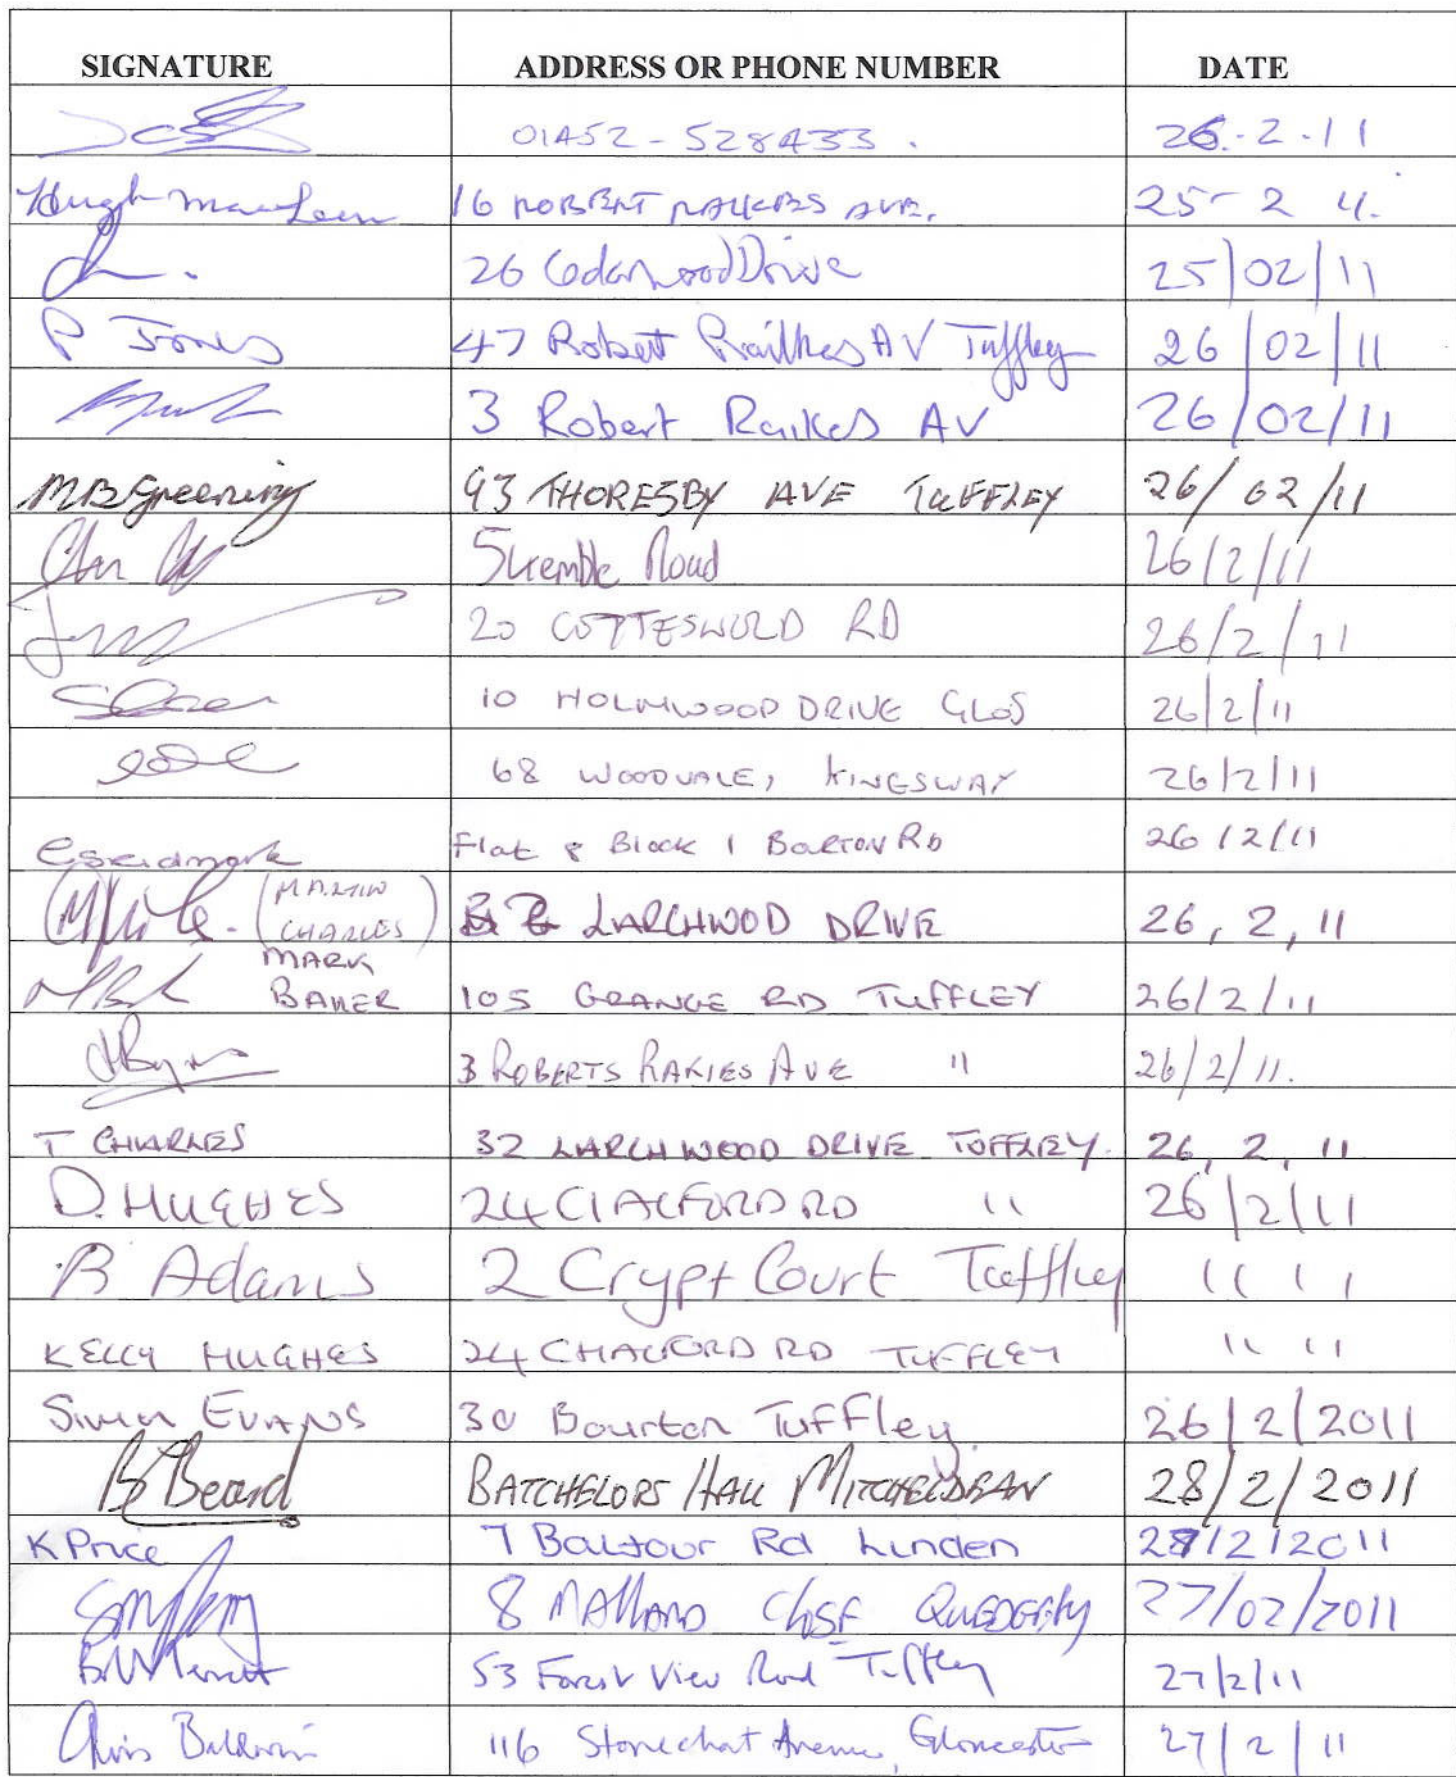 SIGNATURE ADDRESS OR PHONE NUMBER DATE
01452-528433. 26.-2-11
Hugh 16 ROBERT RAIKES AVE. 25-2 11.
26 Cedarwood Drive 25/02/11
P Jones 47 Robert Railkes AV Tuffley 26/02/11
3 Robert Raikes AV 26/02/11
MB Greening 93 THORESBY AVE TUFFLEY 26/02/11
5 Kemble Road 26/2/11
20 COTTESWOLD RD 26/2/11
10 HOLMWOOD DRIVE GLOS 26/2/11
68 WOODVALE, KINGSWAY 26/2/11
Flat 8 Block 1 BOURTON RD 26/2/11
(MARTIN
CHARLES) LARCHWOOD DRIVE 26, 2, 11
MARK
BAKER 105 GRANGE RD TUFFLEY 26/2/11
3 ROBERTS RAKIES AVE " 26/2/11.
T CHARLES 32 LARCHWOOD DRIVE TUFFLEY. 26, 2, 11
D. HUGHES 24 CHALFORD RD " 26/2/11
B Adams 2 Crypt Court Tuffley " "
KELLY HUGHES 24 CHALFORD RD TUFFLEY " "
Simon EVANS 30 Bourton TuFFley. 26/2/2011
Beard BATCHELORS HALL MITCHELDEAN 28/2/2011
K Price 7 Balfour Rd Linden 27/2/2011
8 MALLARD CLOSE QUEDGELEY 27/02/2011
53 Forest View Road Tuffley 27/2/11
Chris Baldwin 116 Stonechat Avenue, Gloucester 27/2/11